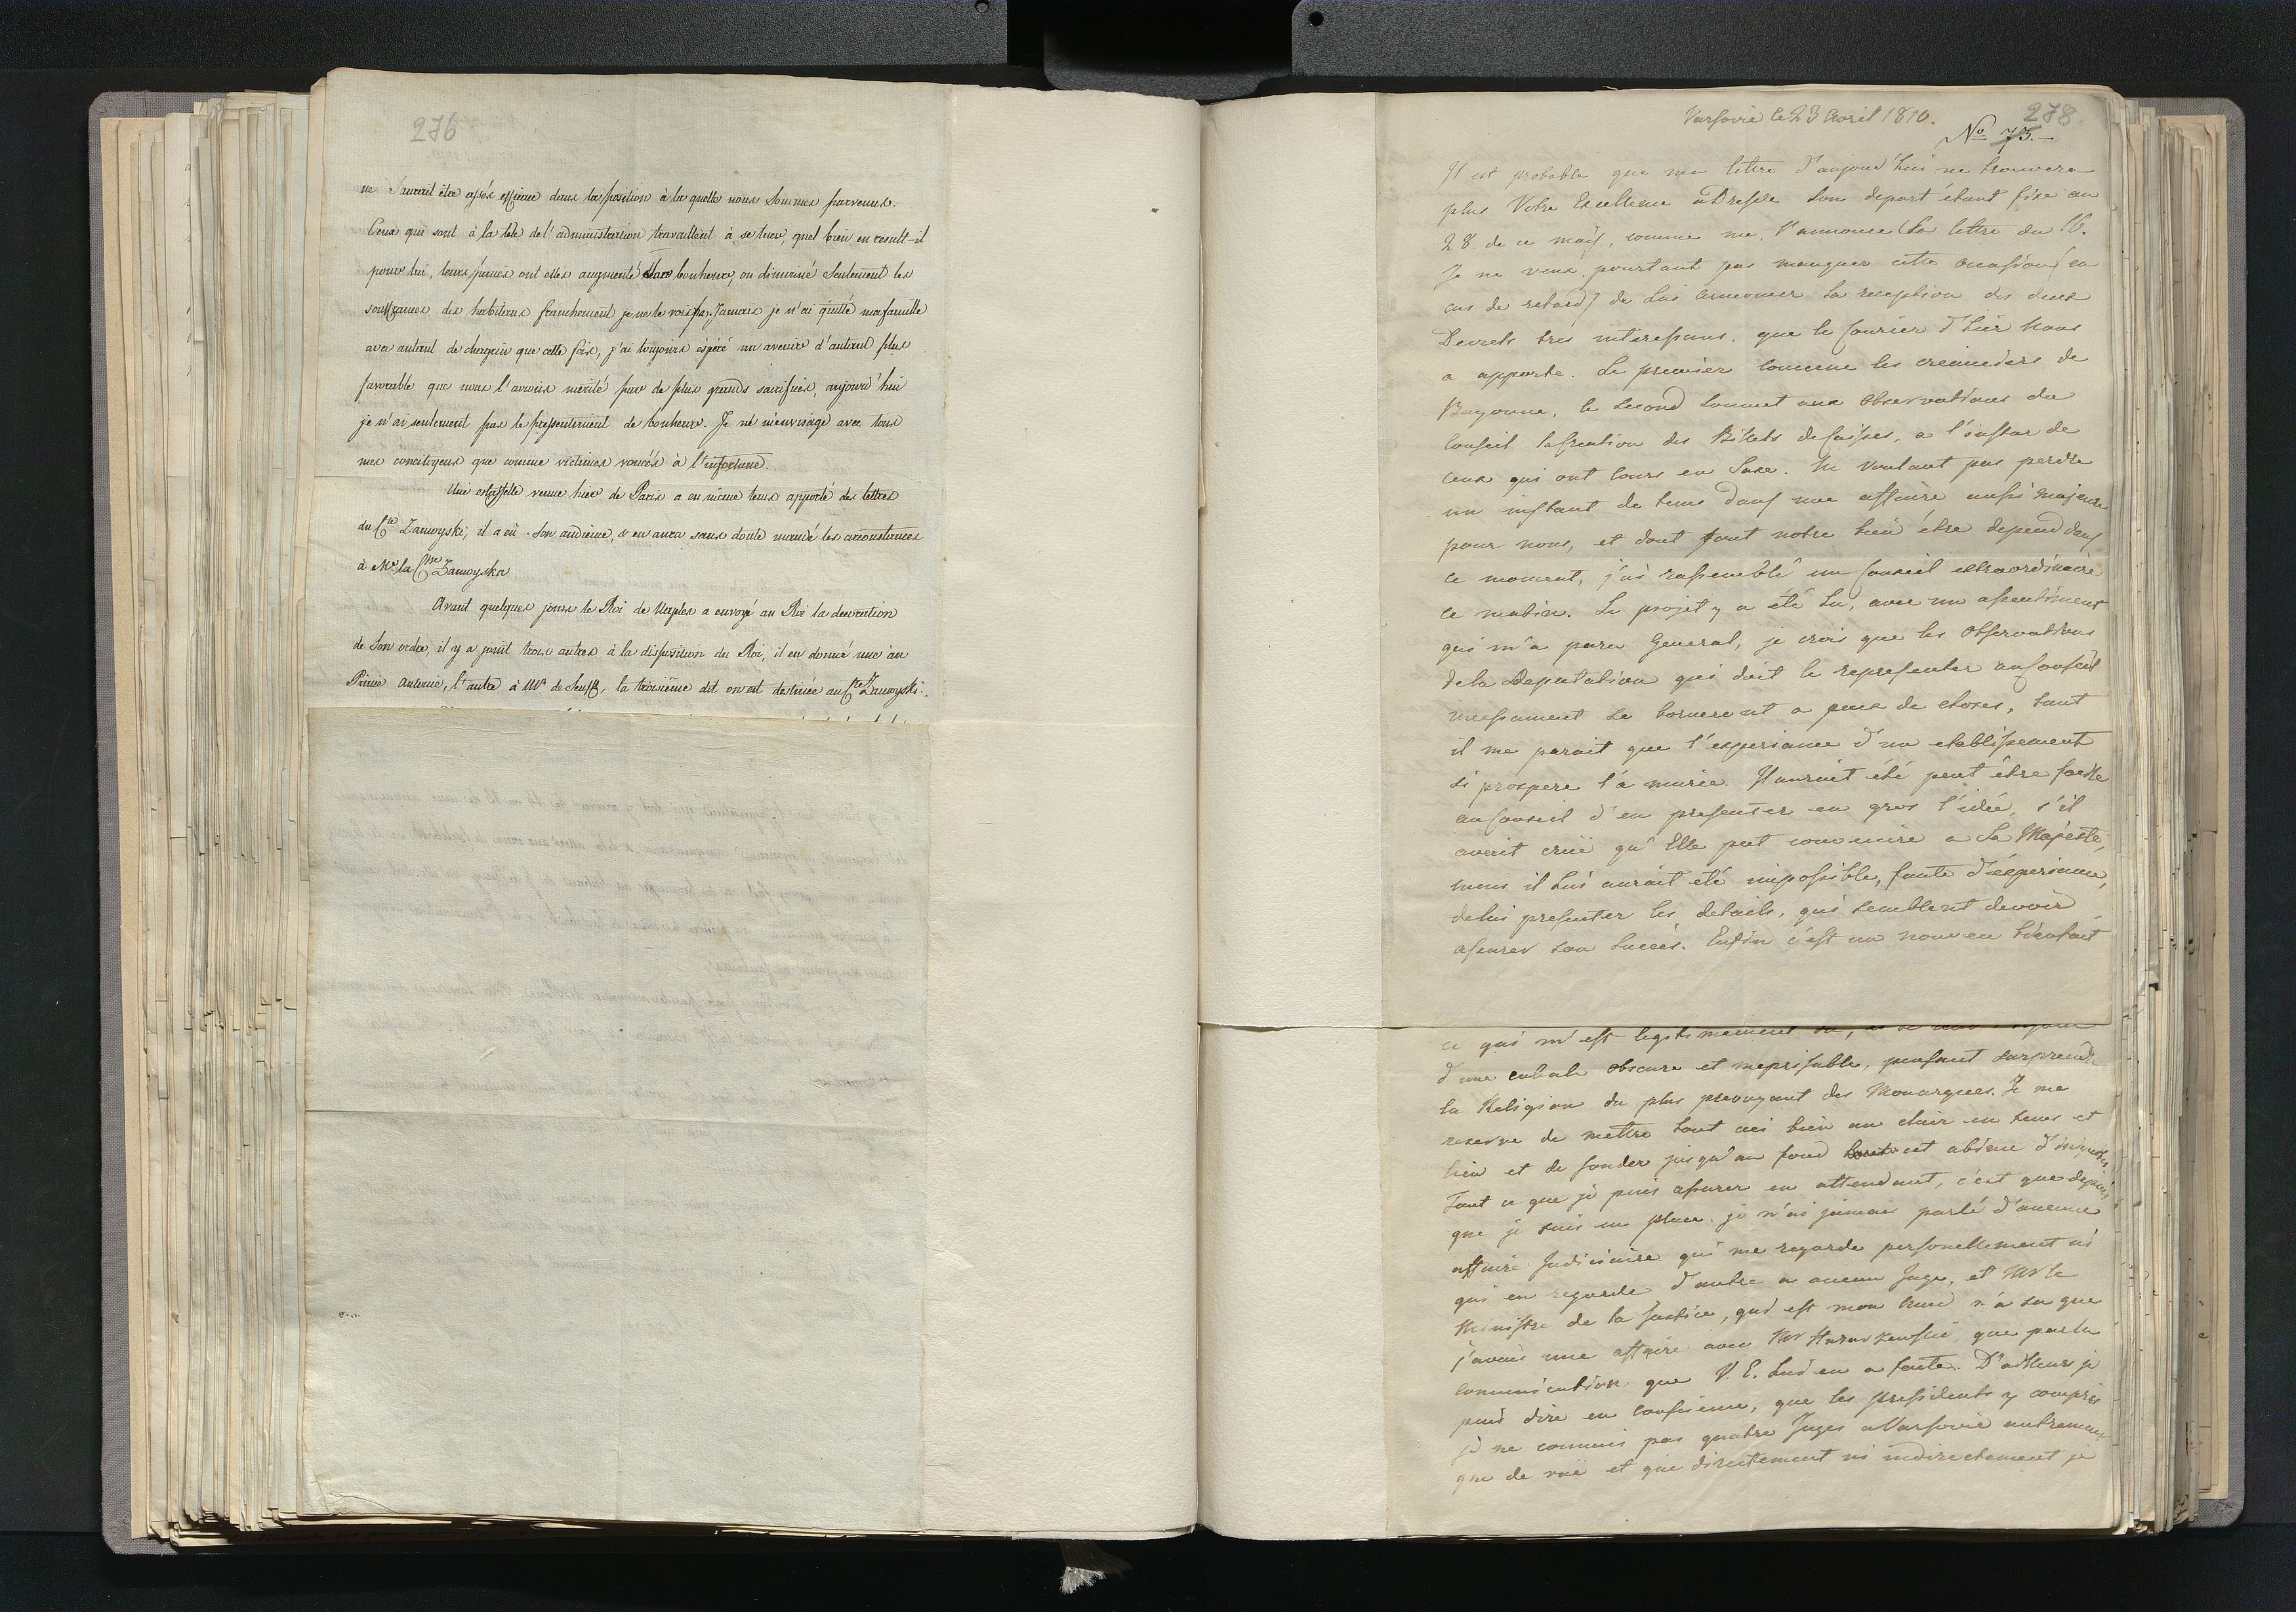 276
ne saurait être assés efficace dans la position à la quelle nous sommes parvenus.
Ceux qui sont à la tête de l'administration travaillent à se tuer, quel bien en result-il
pour lui, leurs peines ont elles augmenté bonheur, ou diminué seulement les
souffrances des habitans franchement je ne le vois pas. Jamais je n'ai quitté ma famille
avec autant de chagrin que cette fois, j'ai toujours éspéré un avenir d'autant plus
favorable que nous l'avons merité par de plus grands sacrifices, aujourd'hui
je n'ai seulement pas le pressentiment de bonheur. Je ne m'envisage avec tous
mes concitoyens que comme victimes vouées à l'infortune.
Une estaffette venue hier de Paris a en même tems apporté des lettres
du Cte Zamoyski, il a eû son audience, & en aura sans doute mandé les circonstances
à Me la Ctsse Zamoyska
Avant quelques jours le Roi de Naples a envoyé au Roi la decoration
de Son ordre, il y a joint trois autres à la disposition du Roi, il en donné une au
Prince Antoine, l'autre à Mr de Senfft, la troisième dit on est destinée au Cte Zamoyski.
278
Varsovie le 23 Avril 1810.
No 75.
Il est probable que ma lettre d'aujourd'hui ne trouvera
plus Votre Excellence a Dresde son depart étant fixé au
28. de ce mois, comme me l'annonce Sa lettre du 16.
Je ne veux pourtant pas manquer cette occasion (en
cas de retard) de Lui annoncer la reception des deux
Decrets tres interessans, que le Courier d'hier nous
a apporté. Le premier concerne les creanciers de
Bayonne, le second soumet aux observations du
Conseil la creation des Billets de caisses, a l'instar de
ceux qui ont cours en Saxe. Ne voulant pas perdre
un instant de tems dans une affaire aussi majeure
pour nous, et dont tout notre bien être depend dans
ce moment, j'ai rassemblé un Conseil extraordinaire
ce matin. Le projet y a été lu, avec un assentiment
qui m'a paru General, je crois que les observations
de la Deputation qui doit le representer au Conseil
incessament se borneront a peu de choses, tant
il me parait que l'experiance d'un etablissement
si prospere l'a murie. Il aurait été peut être facile
au Conseil d'en presenter en gros l'idée, s'il
avait crüe qu'Elle put convenire a Sa Majesté,
mais il Lui aurait été impossible, faute d'experiance,
de lui presenter les details, qui semblent devoir
assurer son succès. Enfin c'est un nouveau bienfait
ce qui m'est legitimement
d'une cabale obscure et meprisable, pensant surprendre
la Religion du plus prevoyant des Monarques. Je me
reserve de mettre tout ceci bien au clair en tems et
lieu et de sonder jusqu'au fond cet abime d'iniquités
Tout ce que je puis assurer en attendant, c'est que depuis
que je suis en place, je n'ai jamais parlé d'aucune
affaire Judiciaire qui me regarde personellement ni
qui en regarde d'autre a aucun Juge, et Mr le
Ministre de la Justice, qui est mon ami n'a su que
j'avais une affaire avec Mr que par la
comunication que V. E. Lui en a faite. D'ailleurs je
puis dire en conscience, que les presidents y compris
je ne connais pas quatre Juges a Varsovie autrement
que de vuë et que directement ni indirectement je